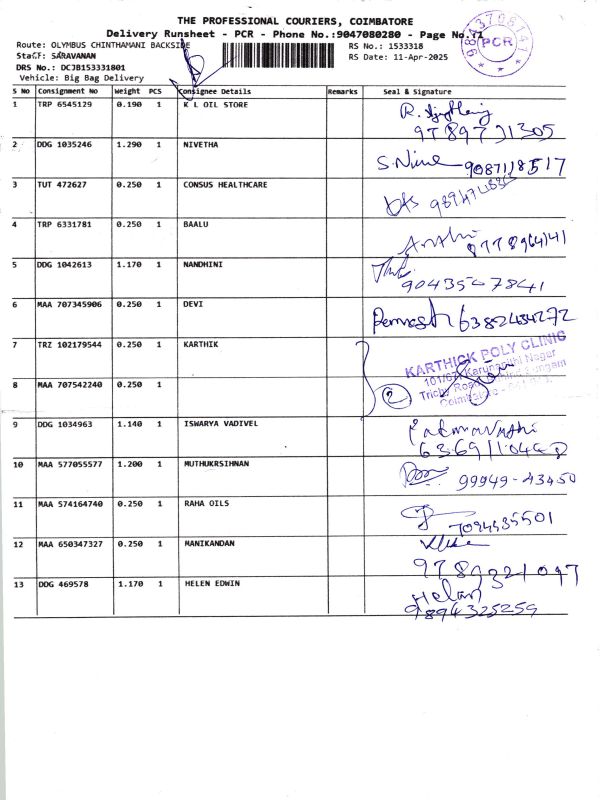 THE PROFESSIONAL COURIERS, COIMBATORE
Delivery Runsheet - PCR - Phone No.:9047080280 - Page No.:1
Route: OLYMBUS CHINTHAMANI BACKSIDE
RS No.: 1533318
Staff: SARAVANAN
RS Date: 11-Apr-2025
DRS No.: DCJB153331801
Vehicle: Big Bag Delivery
PCR
S No Consignment No Weight PCS Consignee Details Remarks Seal & Signature
1 TRP 6545129 0.190 1 K L OIL STORE
9789731305
2 DDG 1035246 1.290 1 NIVETHA
9087118517
3 TUT 472627 0.250 1 CONSUS HEALTHCARE
4 TRP 6331781 0.250 1 BAALU
8778964141
5 DDG 1042613 1.170 1 NANDHINI
6 MAA 707345906 0.250 1 DEVI
6382434272
7 TRZ 102179544 0.250 1 KARTHIK
KARTHICK POLY CLINIC
8 MAA 707542240 0.250 1
2
9 DDG 1034963 1.140 1 ISWARYA VADIVEL
10 MAA 577055577 1.200 1 MUTHUKRSIHNAN
99949-43450
11 MAA 574164740 0.250 1 RAHA OILS
7094535501
12 MAA 650347327 0.250 1 MANIKANDAN
9789321097
13 DDG 469578 1.170 1 HELEN EDWIN
Helan
9894325259